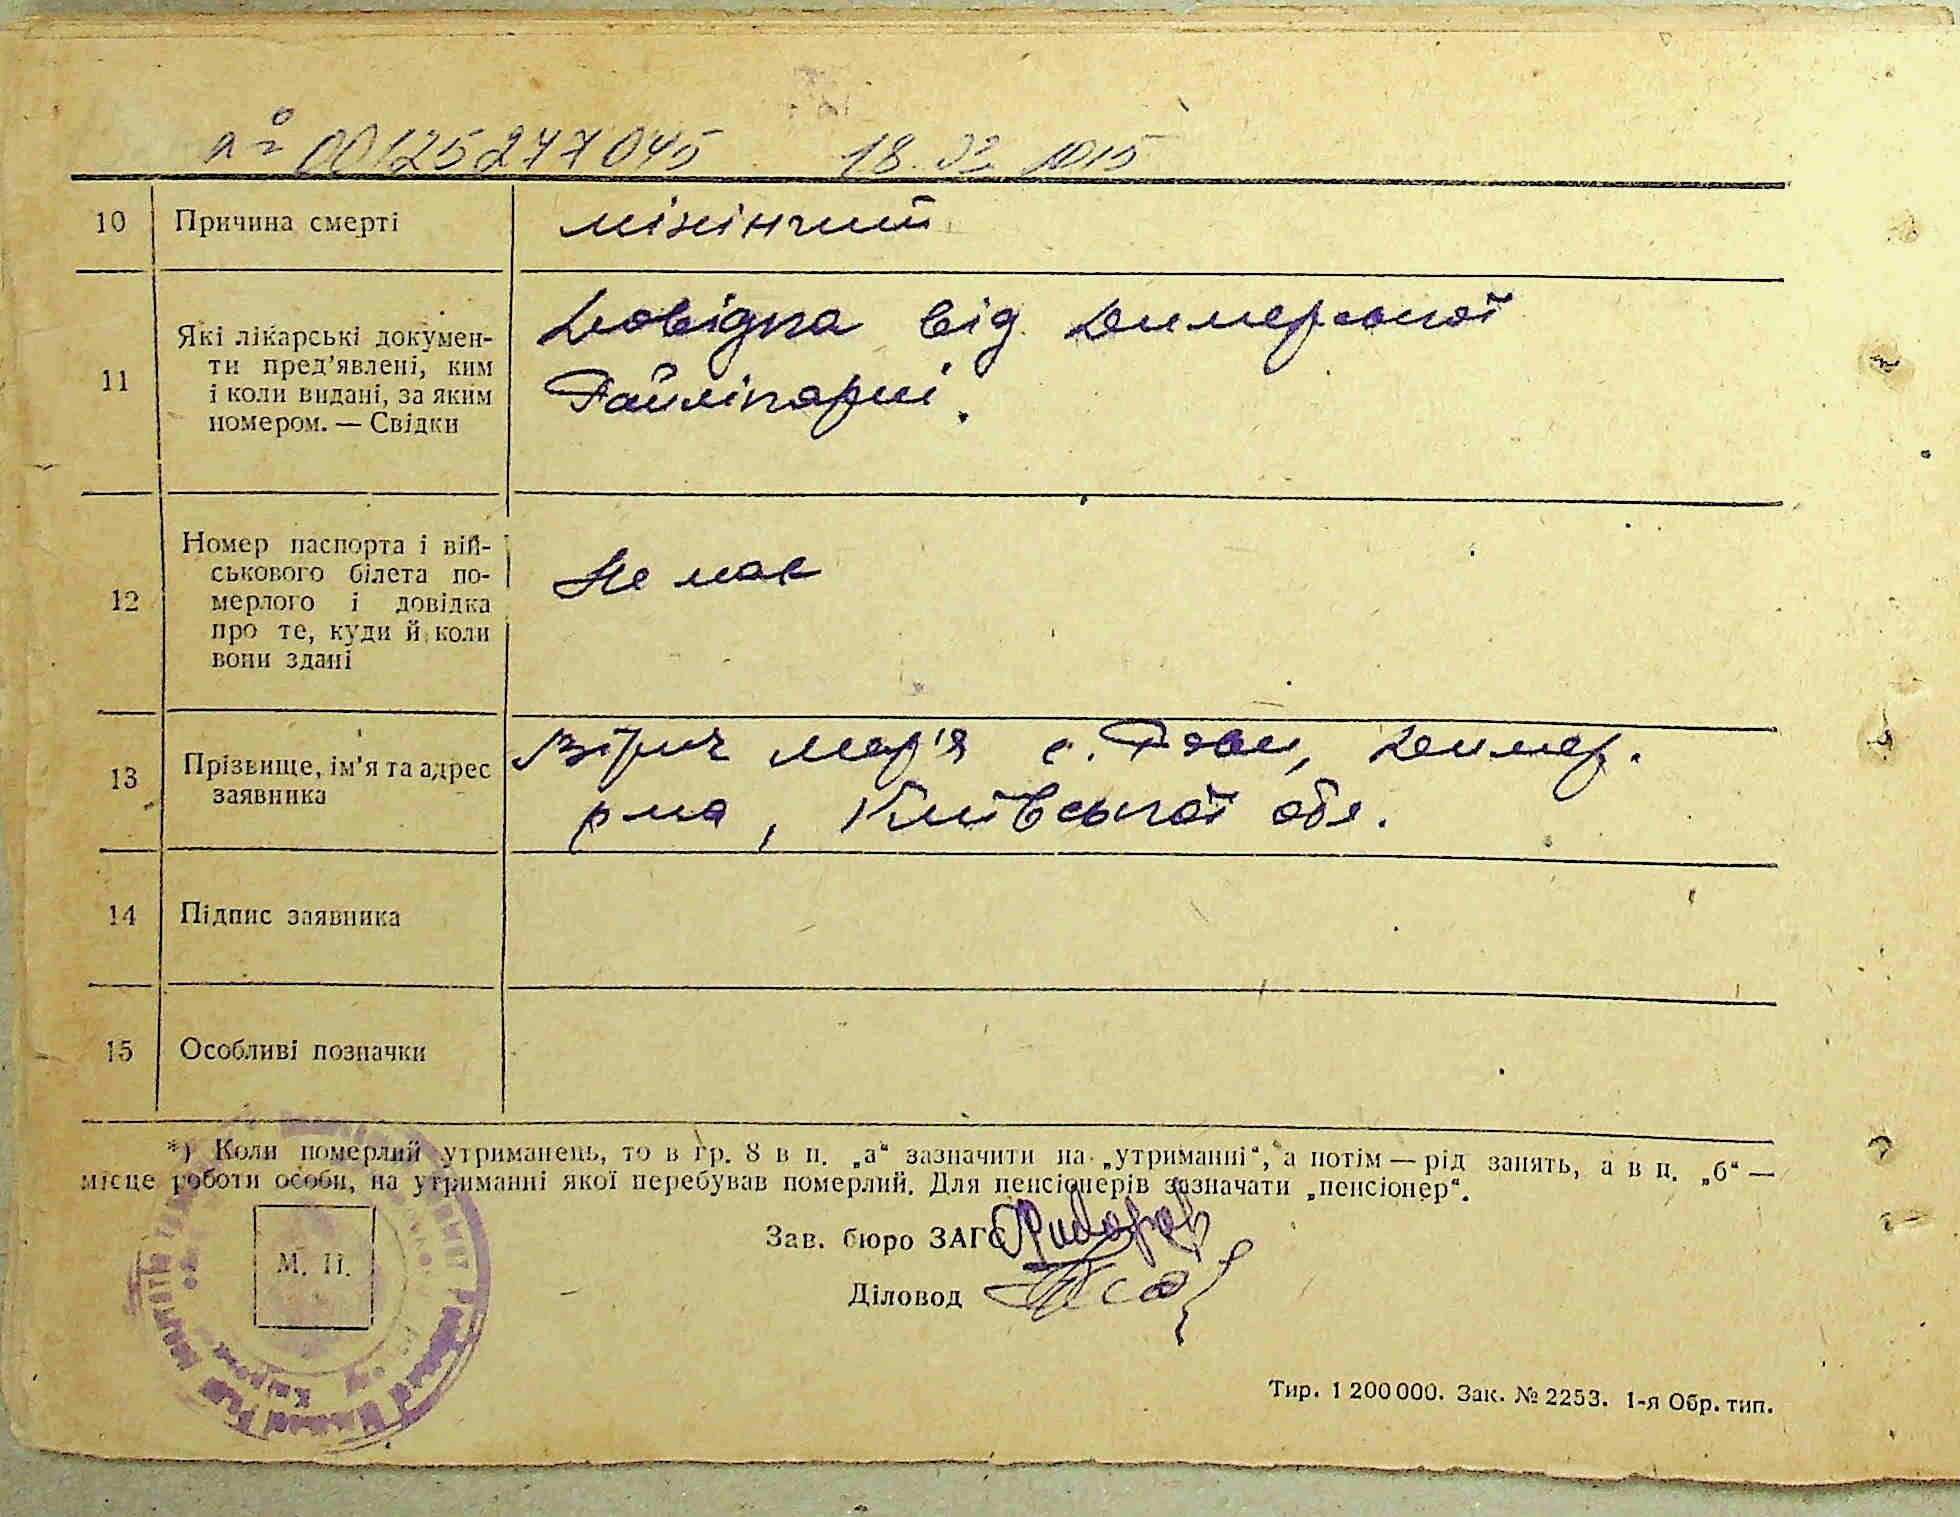 00125277045 18.
10 Причина смерті
менінгит
11 Які лікарські докумен-
ти пред'явлені, ким
і коли видані, за яким
номером. — Свідки
Довідка від Димерської
Райлікарні.
12 Номер паспорта і вій-
ськового білета по-
мерлого і довідка
про те, куди й коли
вони здані
Не має
13 Прізвище, ім'я та адрес
заявника
Мар'я с. Димер.
р-на, Київської обл.
14 Підпис заявника
15 Особливі позначки
*) Коли померлий утриманець, то в гр. 8 в п. „а“ зазначити на „утриманні“, а потім — рід занять, а в п. „б“ —
місце роботи особи, на утриманні якої перебував померлий. Для пенсіонерів зазначати „пенсіонер“.
М. П.
Зав. бюро ЗАГС
Діловод
Тир. 1 200 000. Зак. № 2253. 1-я Обр. тип.